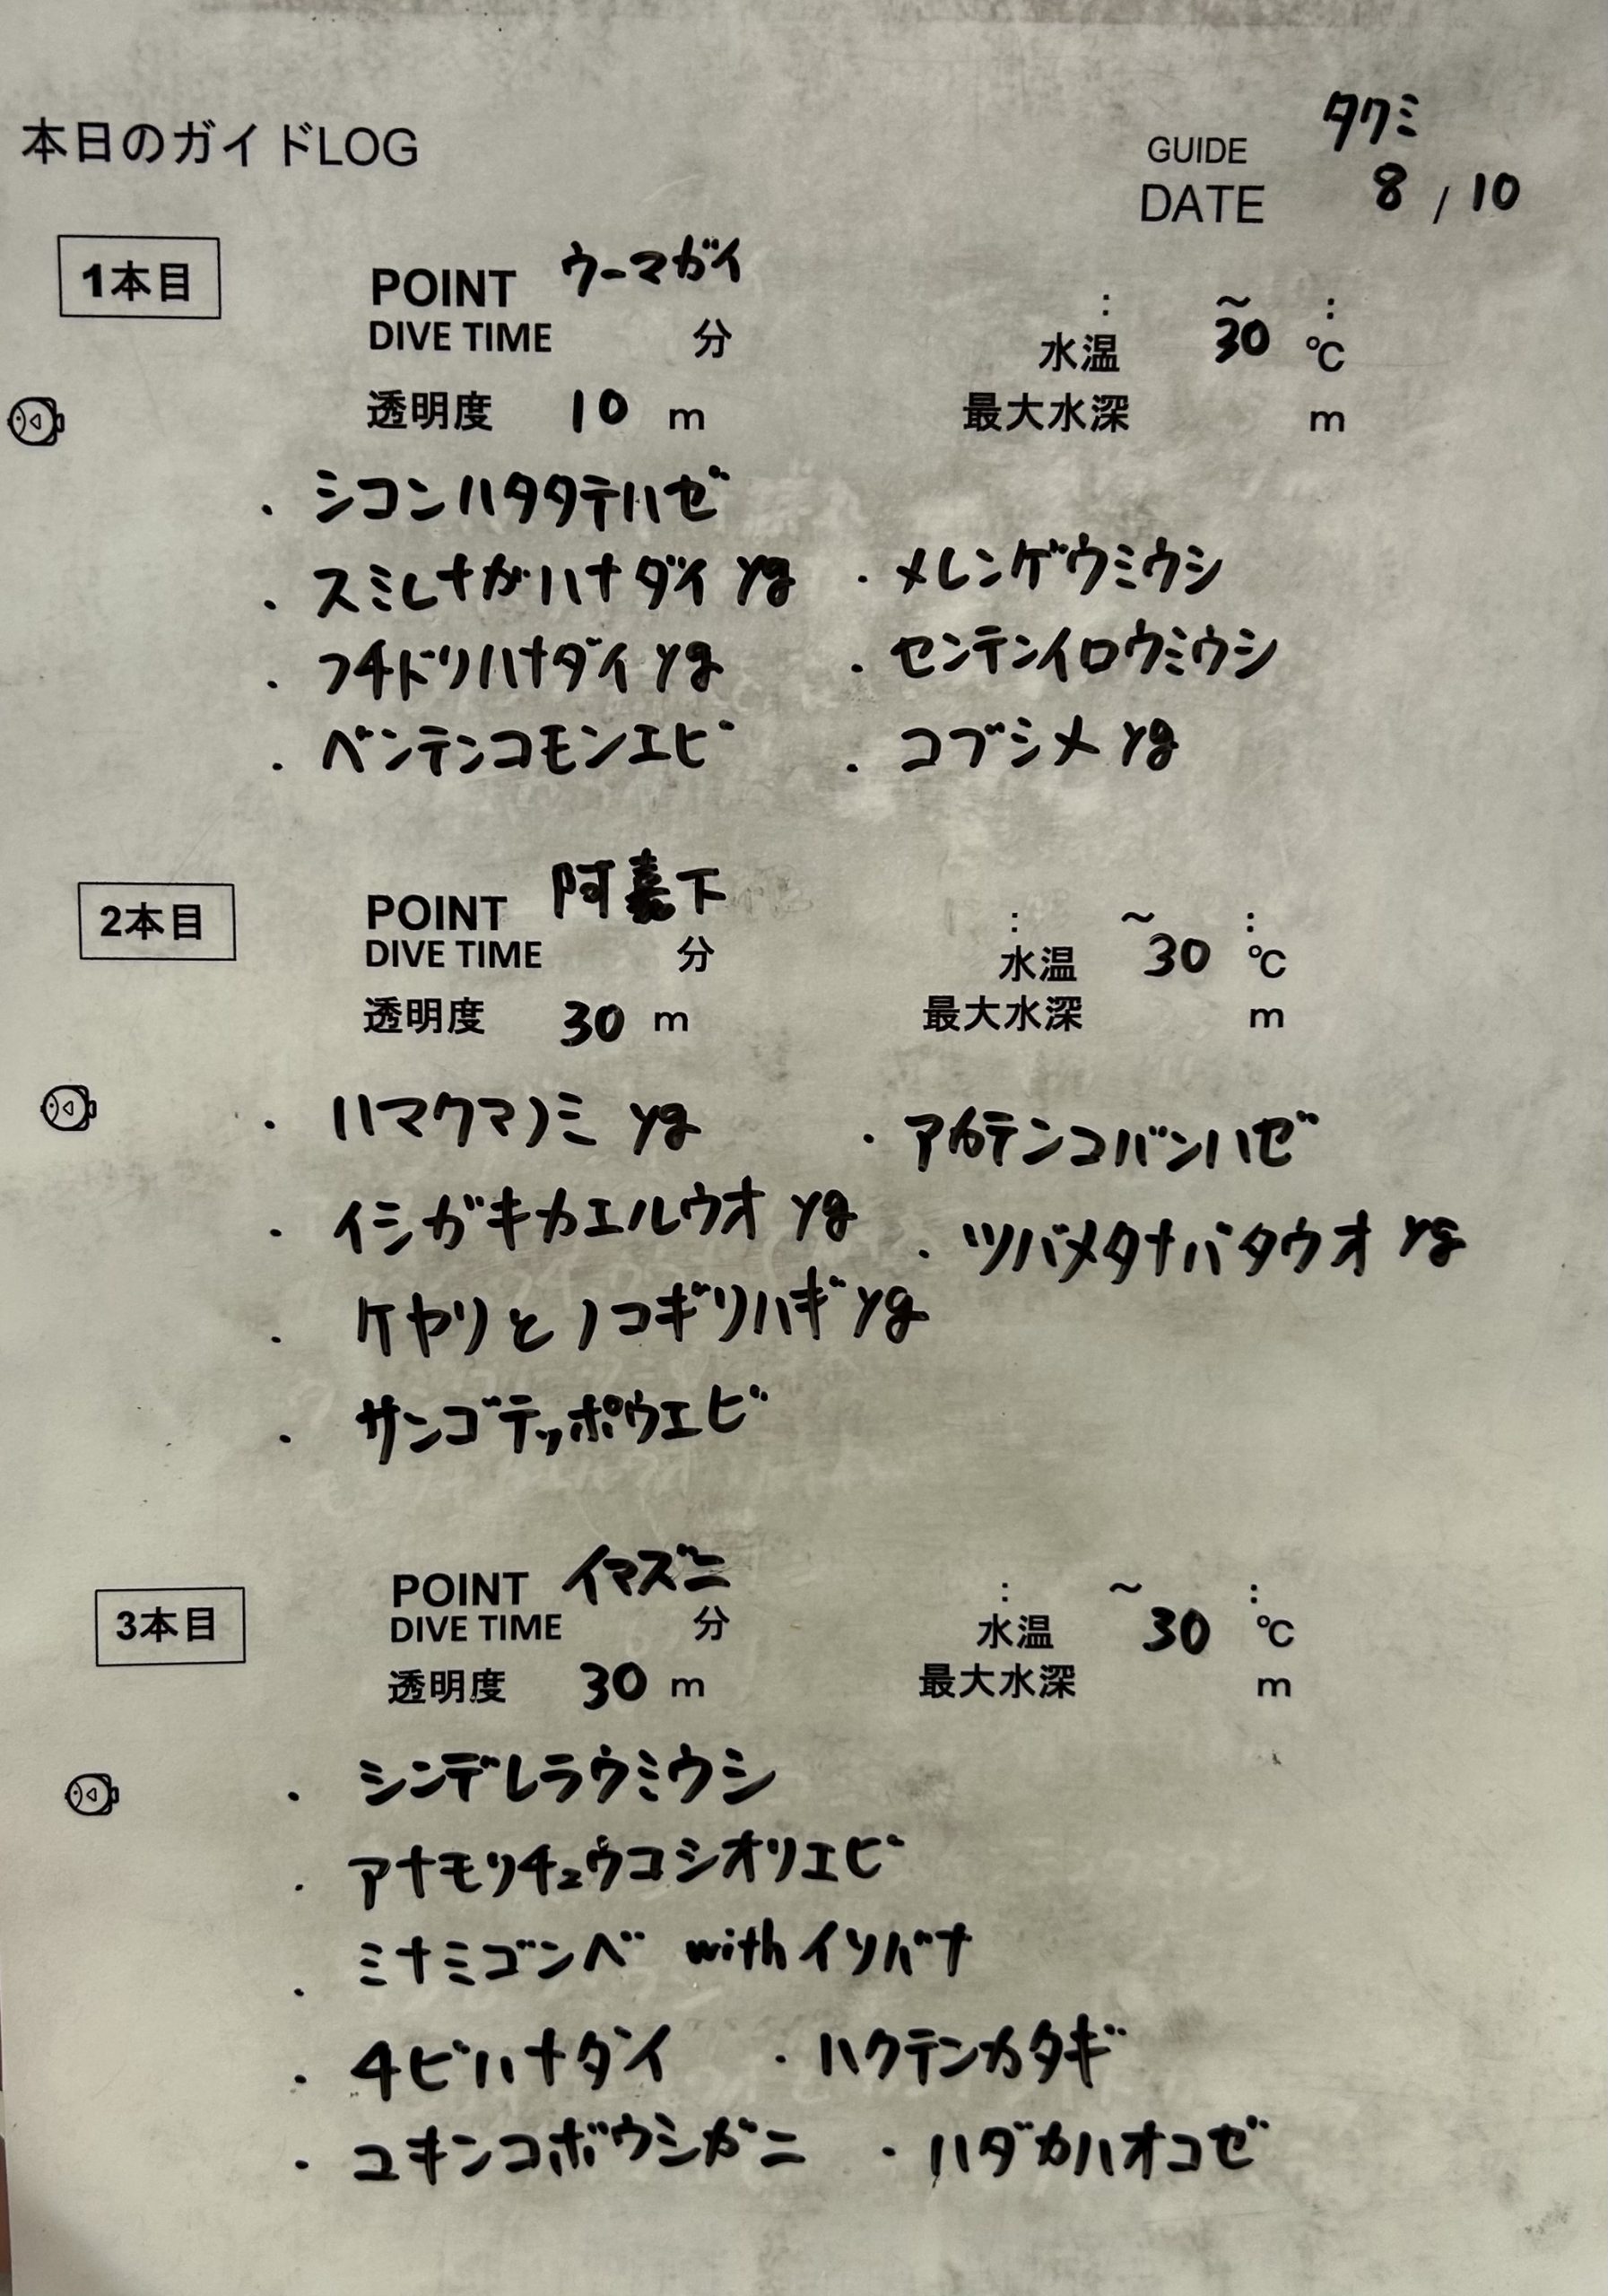 本日のガイドLOG
GUIDE タクミ
DATE 8 / 10
1本目
POINT ウーマガイ : ~ :
DIVE TIME 分 水温 30 ℃
透明度 10 m 最大水深 m
・シコンハタタテハゼ
・スミレナガハナダイ yg ・メレンゲウミウシ
・フチドリハナダイ yg ・センテンイロウミウシ
・ベンテンコモンエビ ・コブシメ yg
2本目
POINT 阿嘉下 : ~ :
DIVE TIME 分 水温 30 ℃
透明度 30 m 最大水深 m
・ハマクマノミ yg ・アカテンコバンハゼ
・イシガキカエルウオ yg ・ツバメタナバタウオ yg
・ケヤリとノコギリハギ yg
・サンゴテッポウエビ
3本目
POINT イマズニ : ~ :
DIVE TIME 分 水温 30 ℃
透明度 30 m 最大水深 m
・シンデレラウミウシ
・アナモリチュウコシオリエビ
・ミナミゴンベ with イソバナ
・チビハナダイ ・ハクテンカタギ
・ユキンコボウシガニ ・ハダカハオコゼ